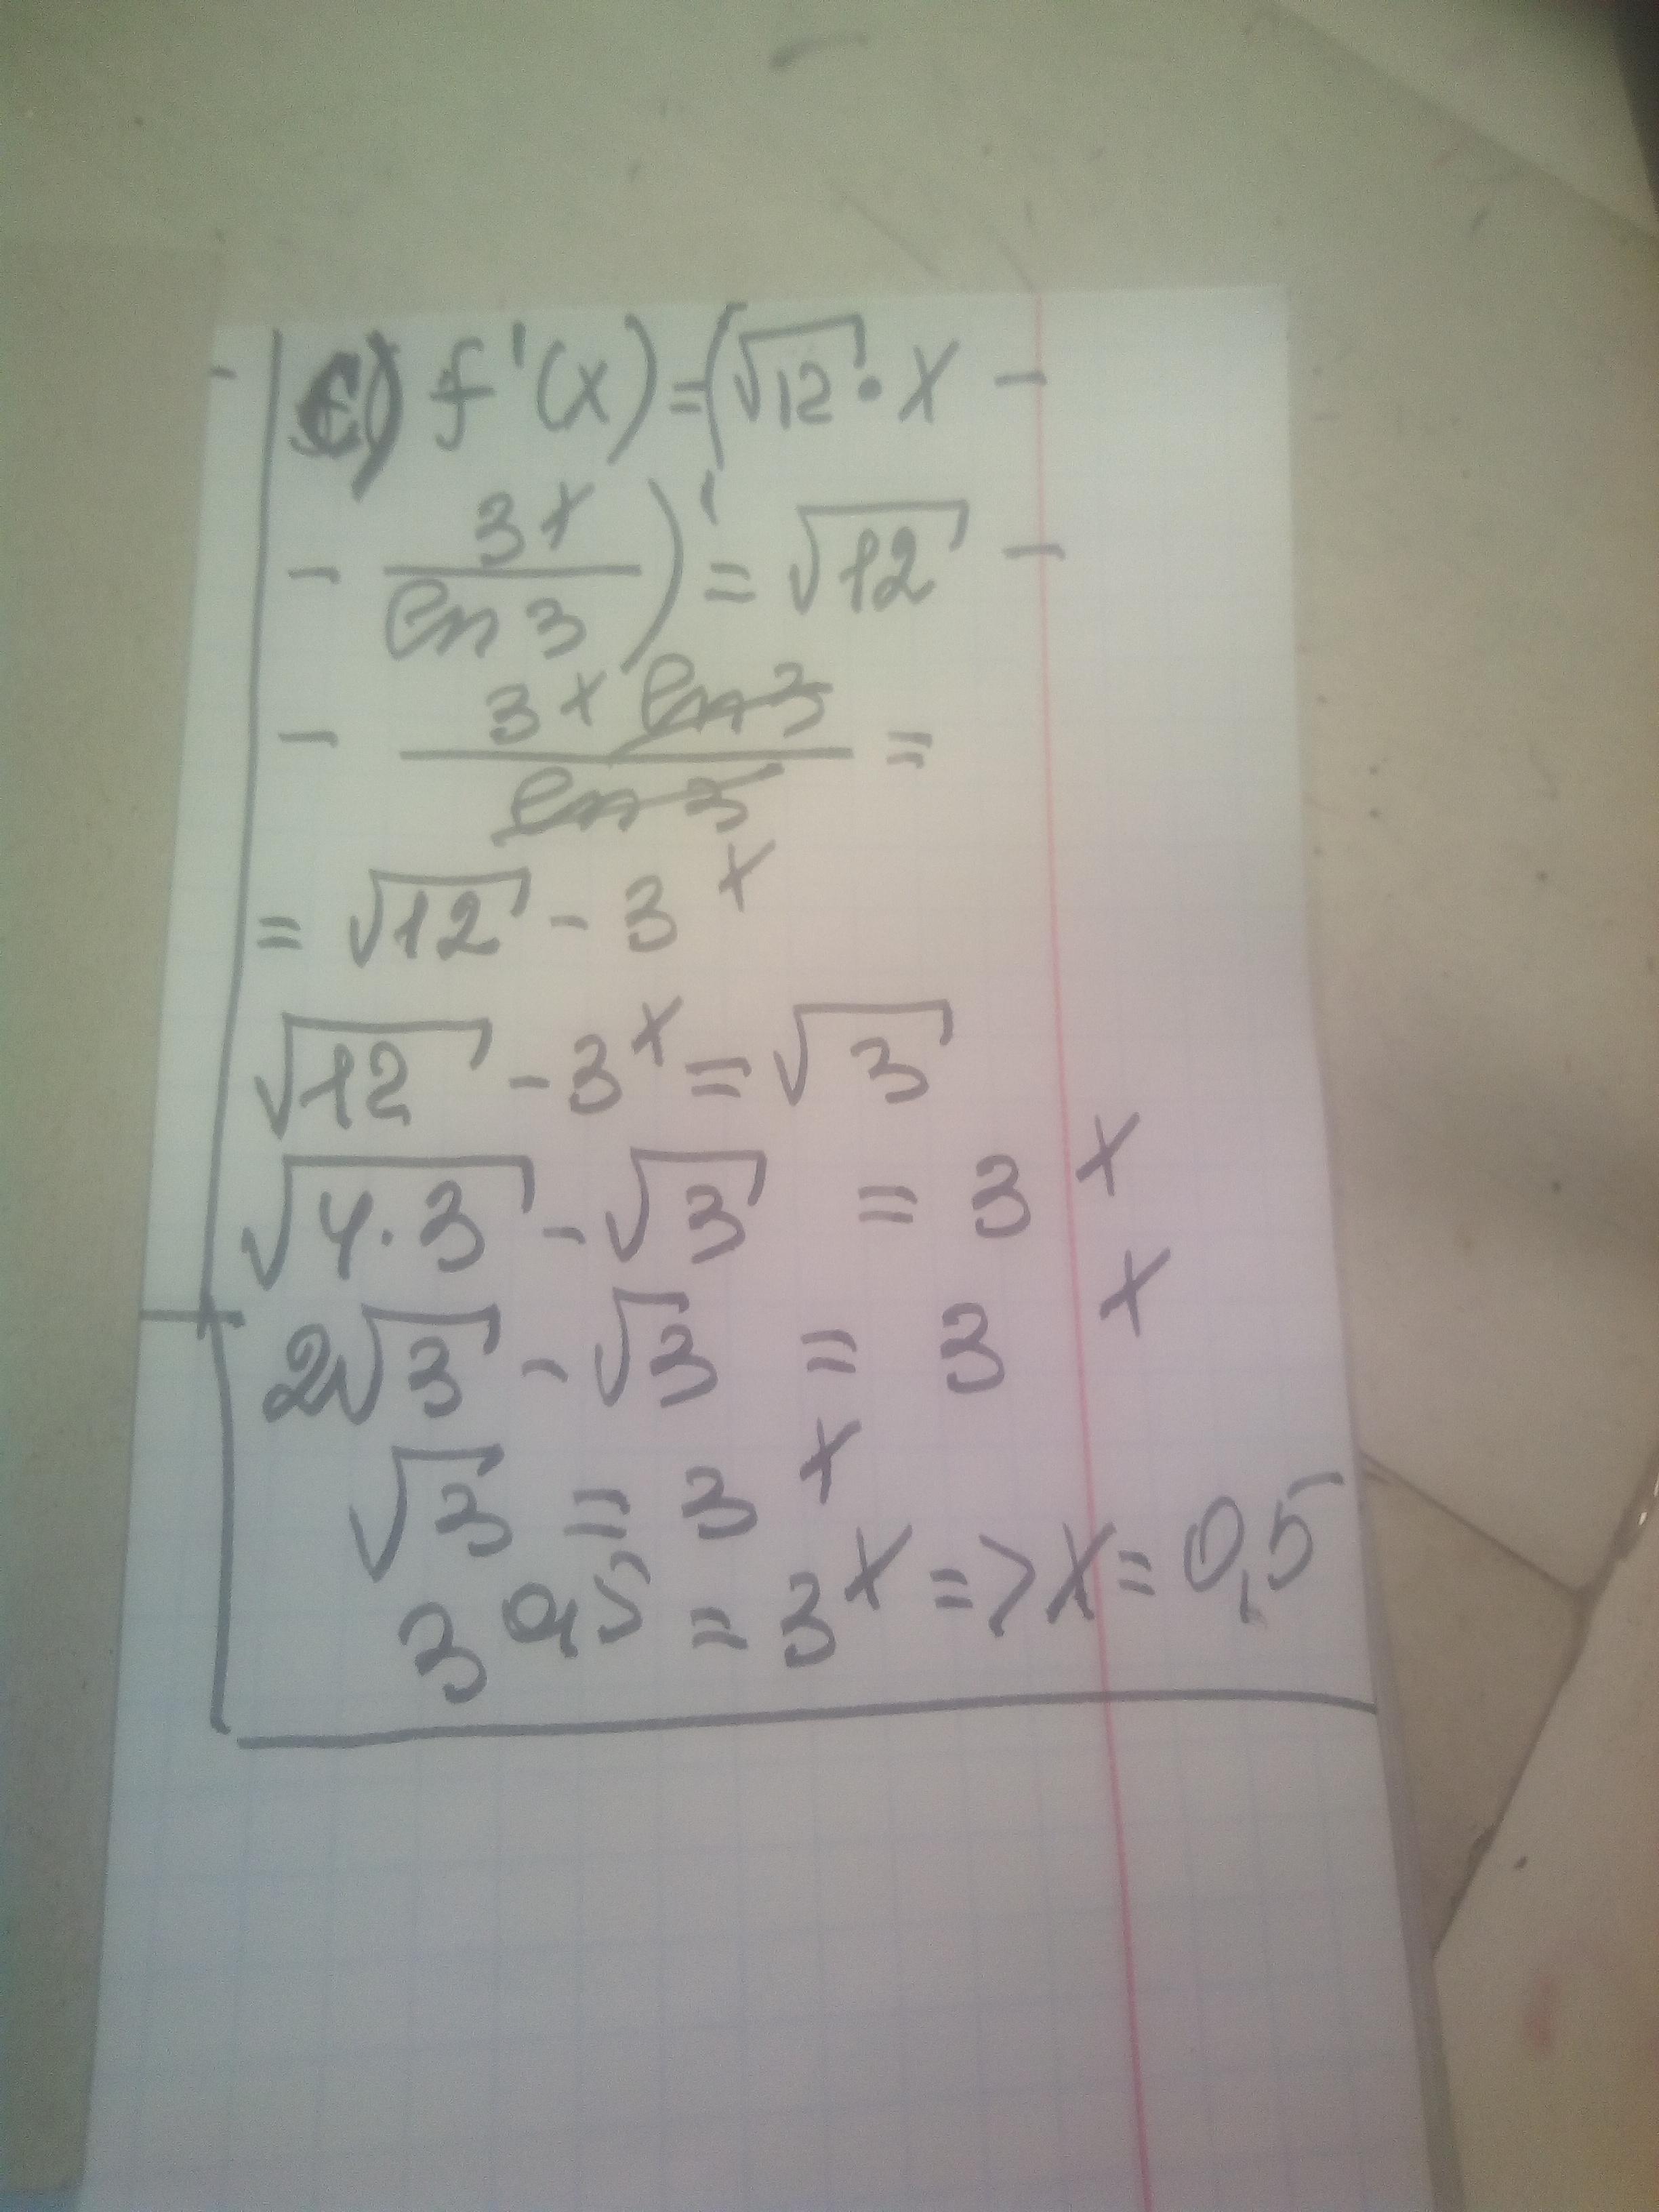 c) f'(x) = (√12 · x -
- 3^x / ln 3)' = √12 -
- 3^x ln 3 / ln 3 =
= √12 - 3^x
√12 - 3^x = √3
√4·3 - √3 = 3^x
2√3 - √3 = 3^x
√3 = 3^x
3^0,5 = 3^x => x = 0,5